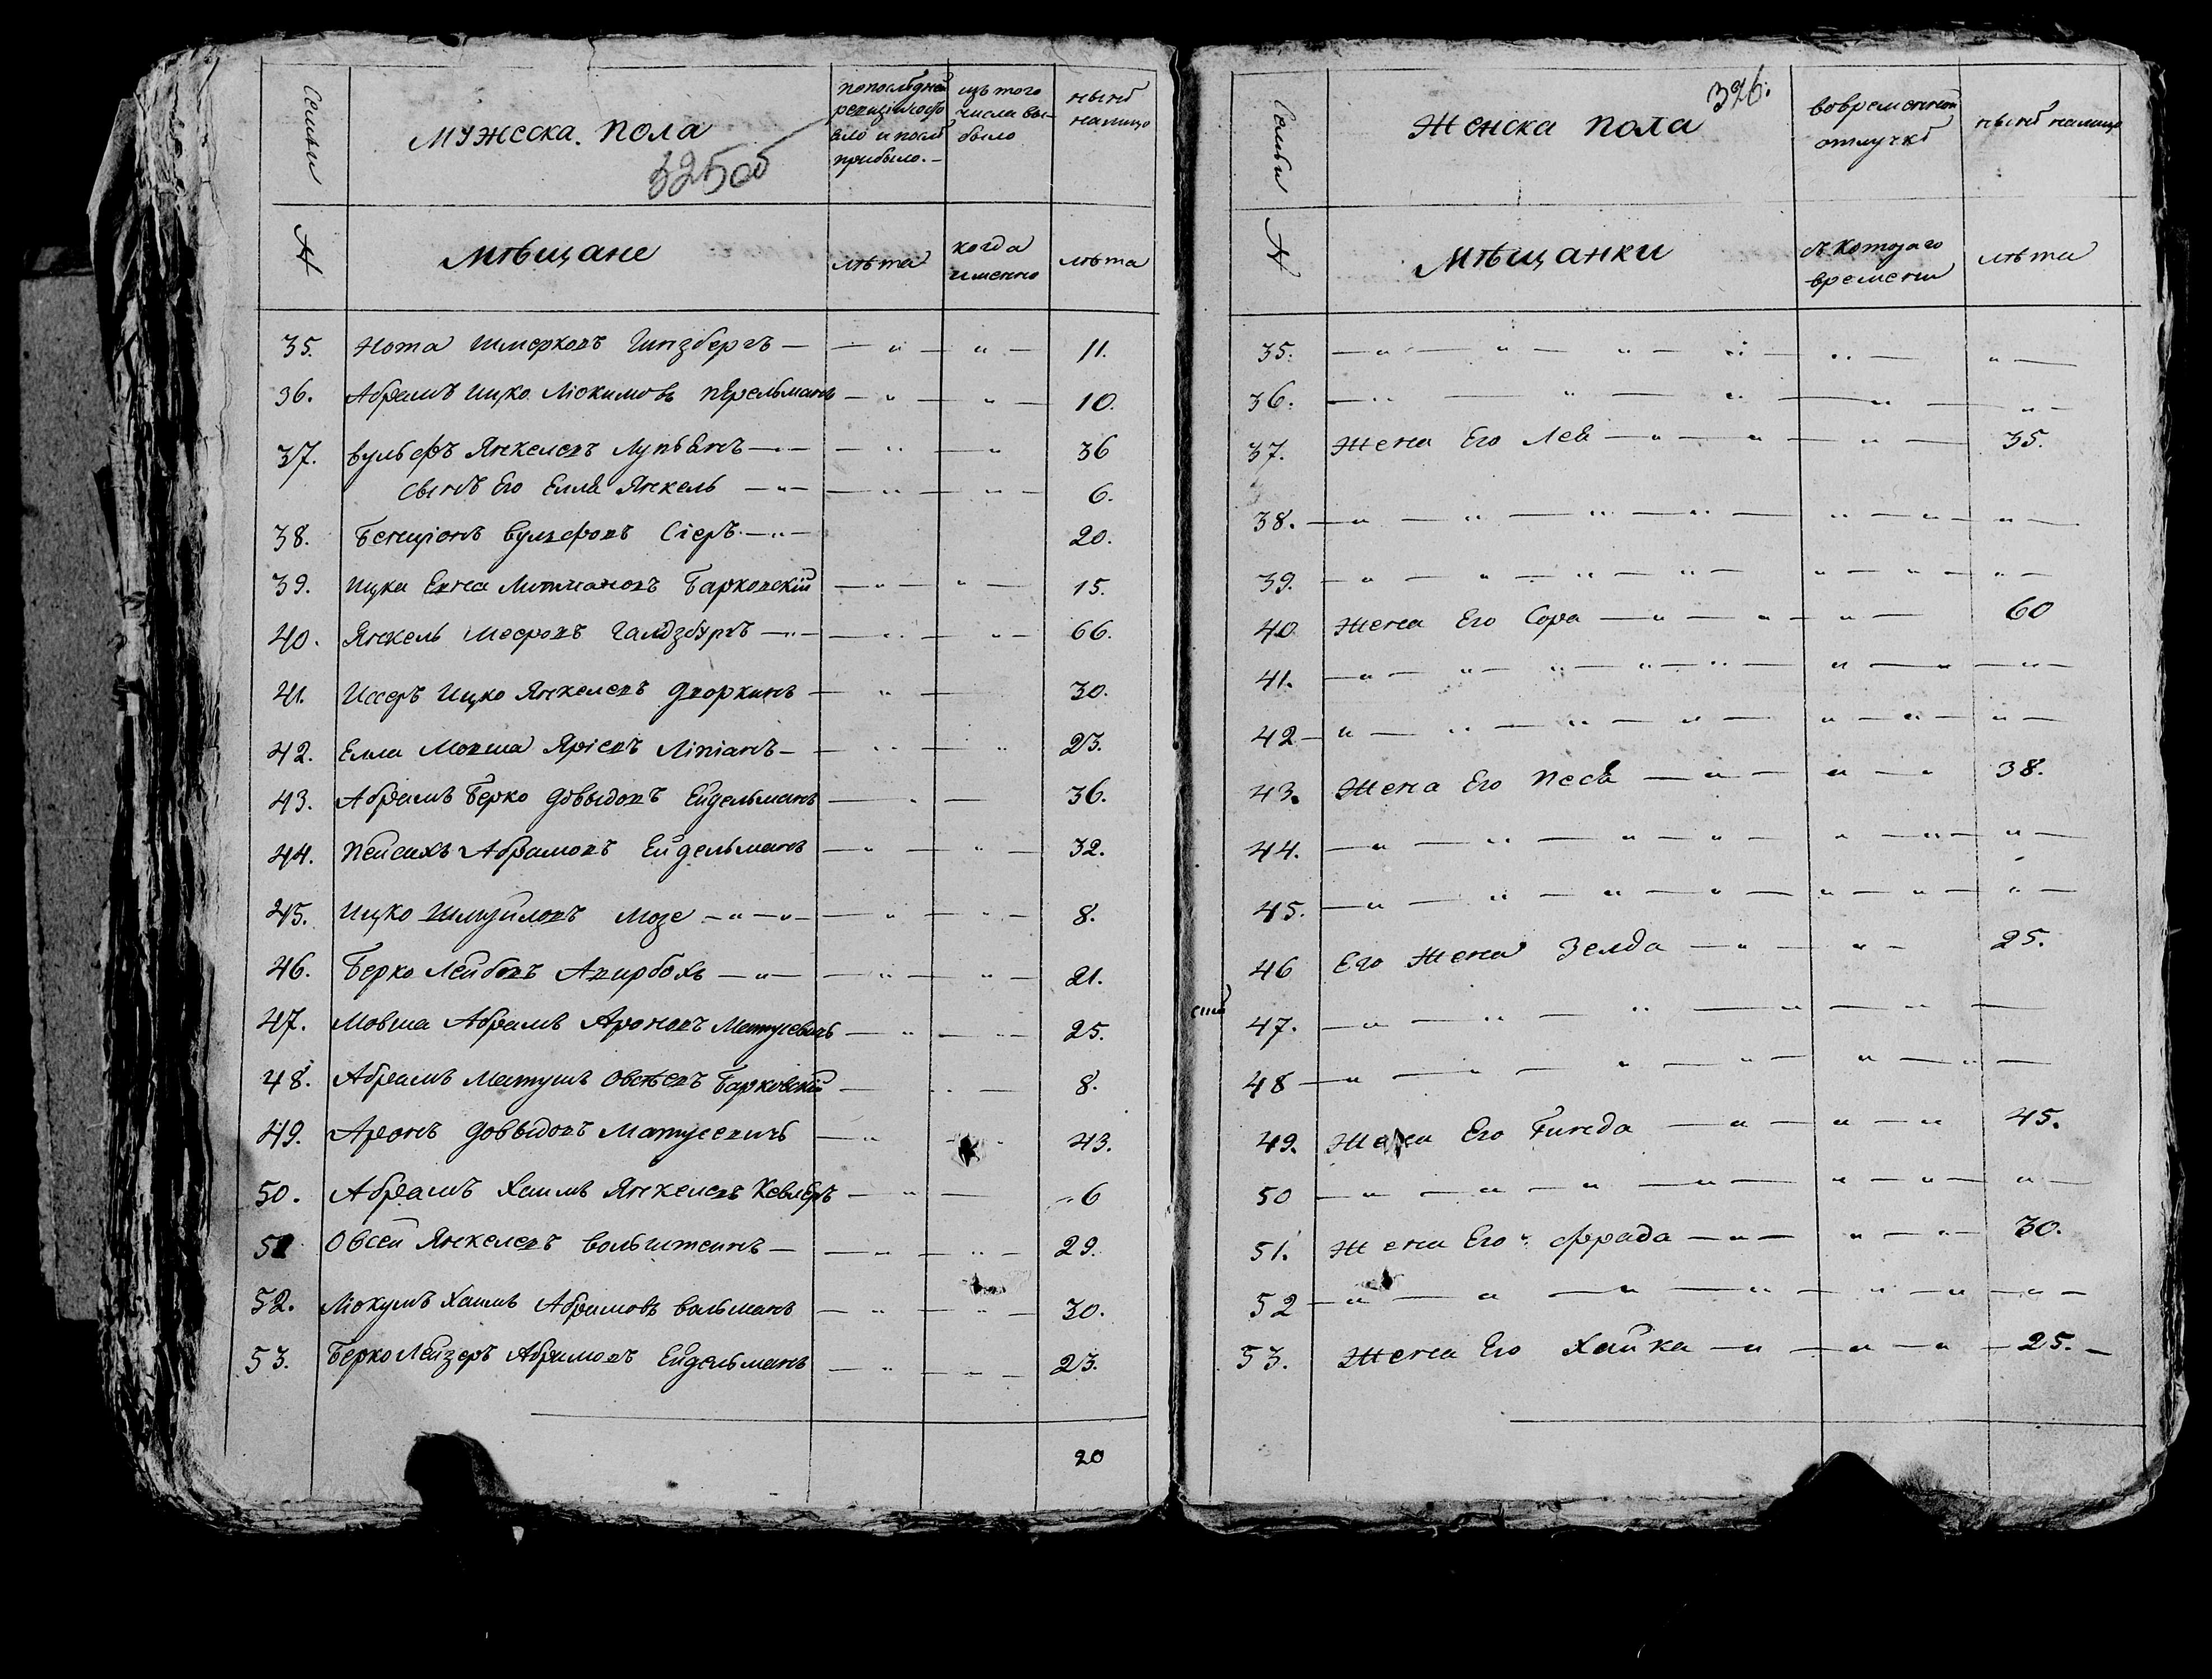 Семьи
Мужеска пола
325об
по последней ревизiи состояло и после прибыло.
изъ того числа выбыло
ныне налицо
№
Мѣщане
лѣта
когда именно
лѣта
35. Нота Шмерковъ Гинзбергъ — — „ — „ — 11.
36. Абрамъ Ицко Люкимовъ Перельманъ — „ — „ — 10.
37. Вульфъ Янкелевъ Лупьянъ — „ — „ 36
сынъ Его Елля Янкель — „ — — „ — „ — 6.
38. Бенцiонъ Вульфовъ Сiеръ — „ — 20.
39. Ицка Литмановъ Барковскiй — „ — „ — 15.
40. Янкель Мееровъ — „ — — „ — „ — 66.
41. Иссеръ Ицко Янкелевъ Дворкинъ — „ — 30.
42. Елля Мовша Арiевъ Липiанъ — — „ — „ 23.
43. Абрамъ Берко Довыдовъ Ейдельманъ — „ — 36.
44. Пейсахъ Абрамовъ Ейдельманъ — „ — „ — 32.
45. Ицко Шмуйловъ Мозе — „ — „ — — „ — „ — 8.
46. Берко Лейбовъ — „ — — „ — „ — 21.
47. Мовша Абрамъ Ароновъ Матусевичъ — „ — „ — 25.
48. Абрамъ Матушъ Овсѣевъ Барковскiй — „ — 8.
49. Аронъ Довыдовъ Матусевичъ — „ — „ 43.
50. Абрамъ Хаимъ Янкелевъ Кевлеръ — „ — 6
51 Овсей Янкелевъ Вольштеинъ — — „ — „ — 29.
52. Люкумъ Хаимъ Абрамовъ Вальманъ — „ — „ — 30.
53. Берко Лейзеръ Абрамовъ Ейдельманъ — „ — — 23.
20
Семьи
Женска пола
326.
во временной отлучкѣ
ныне налицо
№
Мѣщанки
съ котораго времени
лѣта
35. — „ — „ — „ — „ — „ — „ —
36. — „ — „ — „ — „ — „ —
37. Жена Его Лея — „ — „ — „ — 35.
38. — „ — „ — „ — „ — „ — „ — „ —
39. — „ — „ — „ — „ — „ — „ — „ —
40 Жена Его Сора — „ — „ — „ — 60
41. — „ — „ — „ — „ — „ — „ — „ — „ —
42 — „ — „ — „ — „ — „ — „ — „ —
43. Жена Его Песя — „ — „ — „ 38.
44. — „ — „ — „ — „ — „ — „ — „ —
45. — „ — „ — „ — „ — „ — „ — „ —
46 Его Жена Зелда — „ — „ — 25.
47. — „ — „ — „ — „ — „ —
48 — „ — „ — „ — „ — „ — „ —
49. Жена Его Гинда — „ — „ — „ 45.
50 — „ — „ — „ — „ — „ — „ — „ —
51. Жена Его Фрада — „ — „ — „ — 30.
52 — „ — „ — „ — „ — „ — „ — „ —
53. Жена Его Хайка — „ — „ — „ — 25. —